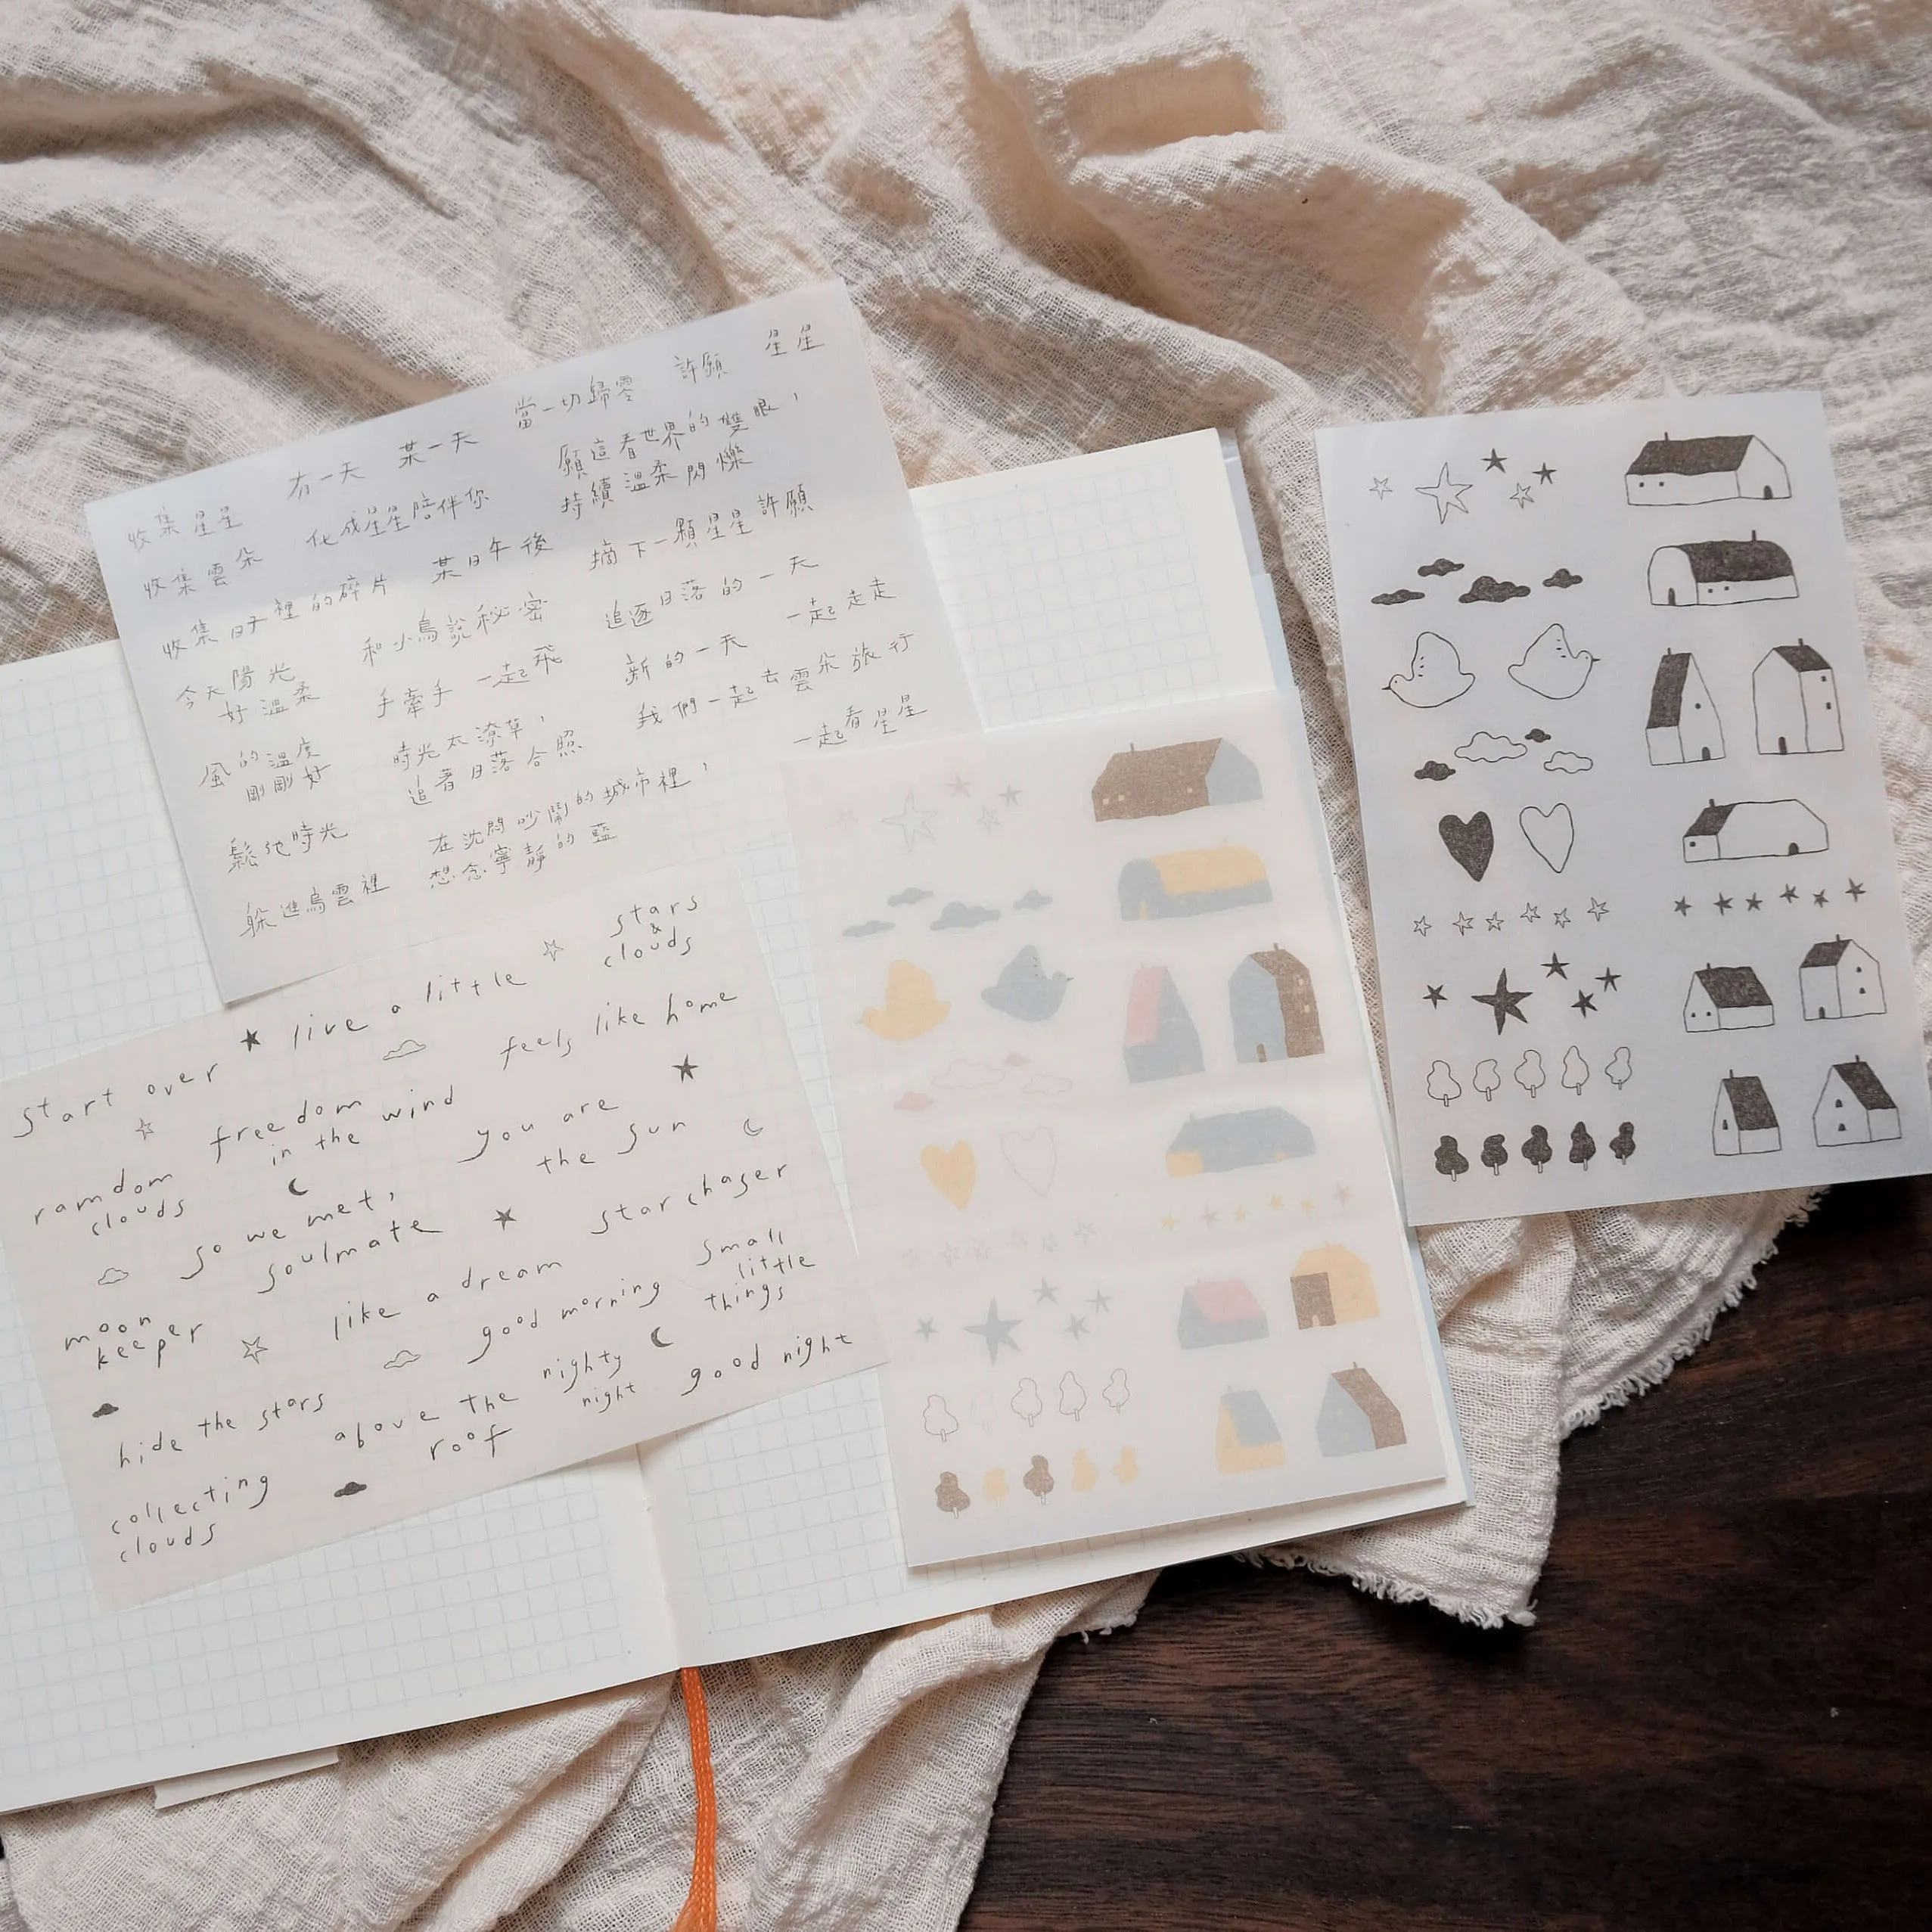 收集星星
有一天
某一天
當一切歸零
許願
星星
收集雲朵
化成星星陪伴你
願這看世界的雙眼，
持續溫柔閃爍
收集日子裡的碎片
某日午後
摘下一顆星星許願
今天陽光
好溫柔
和小鳥說秘密
追逐日落的一天
一起走走
風的溫度
剛剛好
手牽手
一起飛
新的一天
我們一起去雲朵旅行
時光太潦草，
追著日落合照
一起看星星
鬆弛時光
在沈悶吵鬧的城市裡，
想念寧靜的藍
躲進烏雲裡
start over
live a little
stars
&
clouds
freedom
in the wind
feels like home
ramdom
clouds
so we met,
soulmate
you are
the sun
star chaser
moon
keeper
like a dream
good morning
small
little
things
hide the stars
above the
roof
nighty
night
good night
collecting
clouds